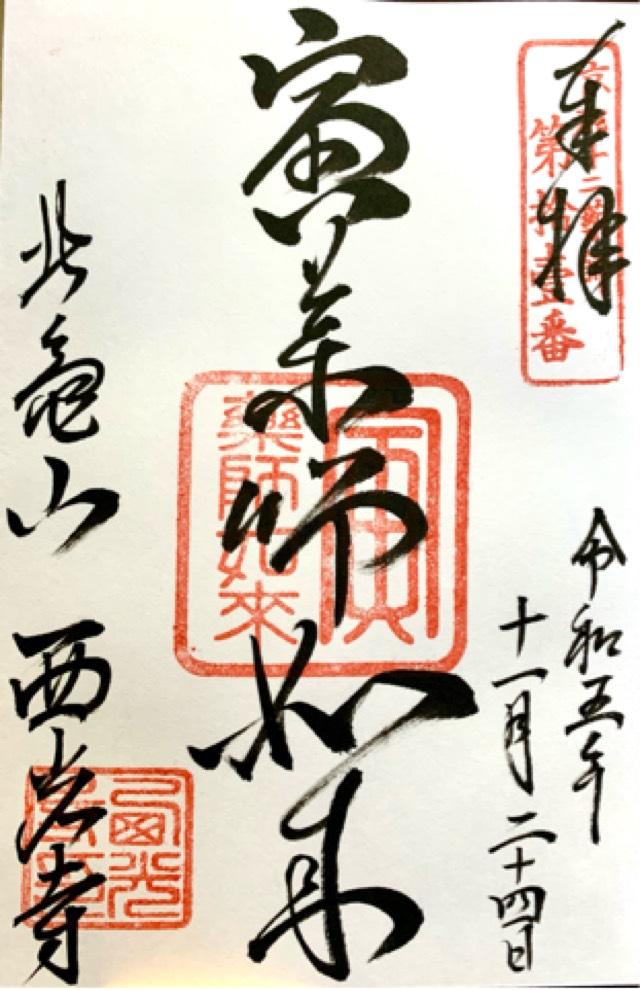 奉拝
第拾壹番
令和五年
十一月二十四日
寅薬師如来
寅
藥師如來
北亀山 西光寺